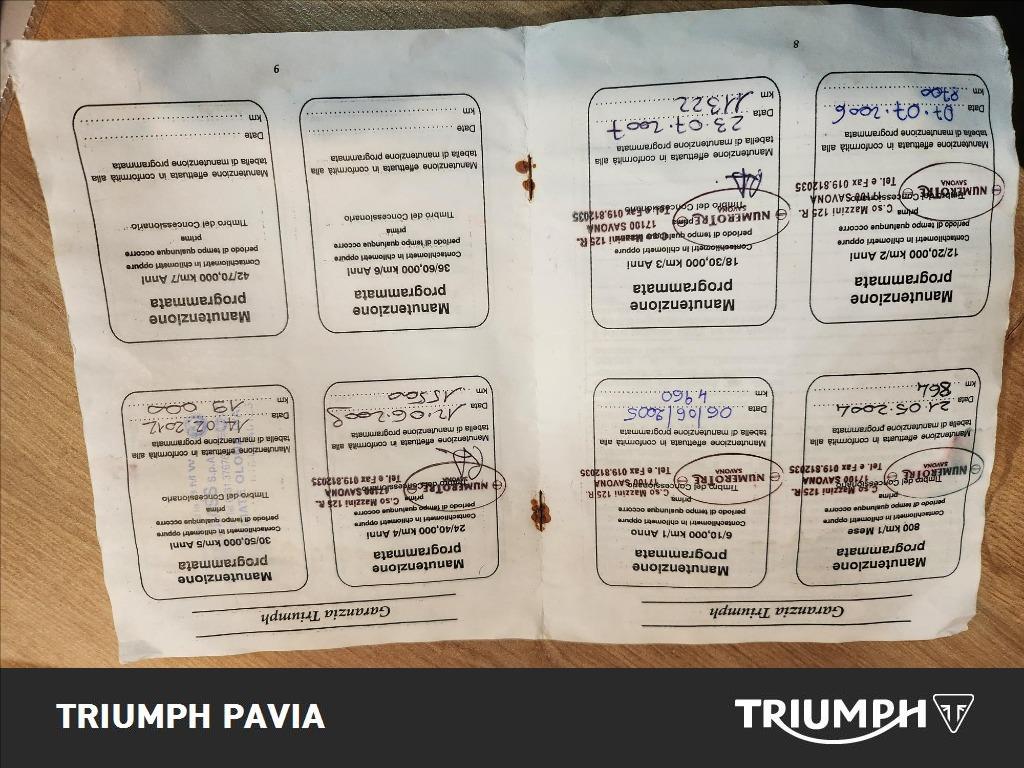 Garanzia Triumph
Manutenzione
programmata
800 km/1 Mese
Contachilometri in chilometri oppure
periodo di tempo qualunque occorre
prima
Timbro del Concessionario
NUMEROTRE
SAVONA
C.so Mazzini 125 R.
17100 SAVONA
Tel. e Fax 019.812035
Manutenzione effettuata in conformità alla
tabella di manutenzione programmata
Data 21.05.2004
km 864
Manutenzione
programmata
6/10,000 km/1 Anno
Contachilometri in chilometri oppure
periodo di tempo qualunque occorre
prima
Timbro del Concessionario
NUMEROTRE
SAVONA
C.so Mazzini 125 R.
17100 SAVONA
Tel. e Fax 019.812035
Manutenzione effettuata in conformità alla
tabella di manutenzione programmata
Data 06/06/2005
km 4960
Manutenzione
programmata
12/20,000 km/2 Anni
Contachilometri in chilometri oppure
periodo di tempo qualunque occorre
prima
Timbro del Concessionario
NUMEROTRE
SAVONA
C.so Mazzini 125 R.
17100 SAVONA
Tel. e Fax 019.812035
Manutenzione effettuata in conformità alla
tabella di manutenzione programmata
Data 07.07.2006
km 8700
Manutenzione
programmata
18/30,000 km/3 Anni
Contachilometri in chilometri oppure
periodo di tempo qualunque occorre
prima
Timbro del Concessionario
NUMEROTRE
SAVONA
C.so Mazzini 125 R.
17100 SAVONA
Tel. e Fax 019.812035
Manutenzione effettuata in conformità alla
tabella di manutenzione programmata
Data 23.07.2007
km 11322
8
Garanzia Triumph
Manutenzione
programmata
24/40,000 km/4 Anni
Contachilometri in chilometri oppure
periodo di tempo qualunque occorre
prima
Timbro del Concessionario
NUMEROTRE
SAVONA
C.so Mazzini 125 R.
17100 SAVONA
Tel. e Fax 019.812035
Manutenzione effettuata in conformità alla
tabella di manutenzione programmata
Data 12.06.2008
km 15500
Manutenzione
programmata
30/50,000 km/5 Anni
Contachilometri in chilometri oppure
periodo di tempo qualunque occorre
prima
Timbro del Concessionario
Manutenzione effettuata in conformità alla
tabella di manutenzione programmata
Data 14.02.2012
km 19000
Manutenzione
programmata
36/60,000 km/6 Anni
Contachilometri in chilometri oppure
periodo di tempo qualunque occorre
prima
Timbro del Concessionario
Manutenzione effettuata in conformità alla
tabella di manutenzione programmata
Date
km
Manutenzione
programmata
42/70,000 km/7 Anni
Contachilometri in chilometri oppure
periodo di tempo qualunque occorre
prima
Timbro del Concessionario
Manutenzione effettuata in conformità alla
tabella di manutenzione programmata
Date
km
9
TRIUMPH PAVIA
TRIUMPH